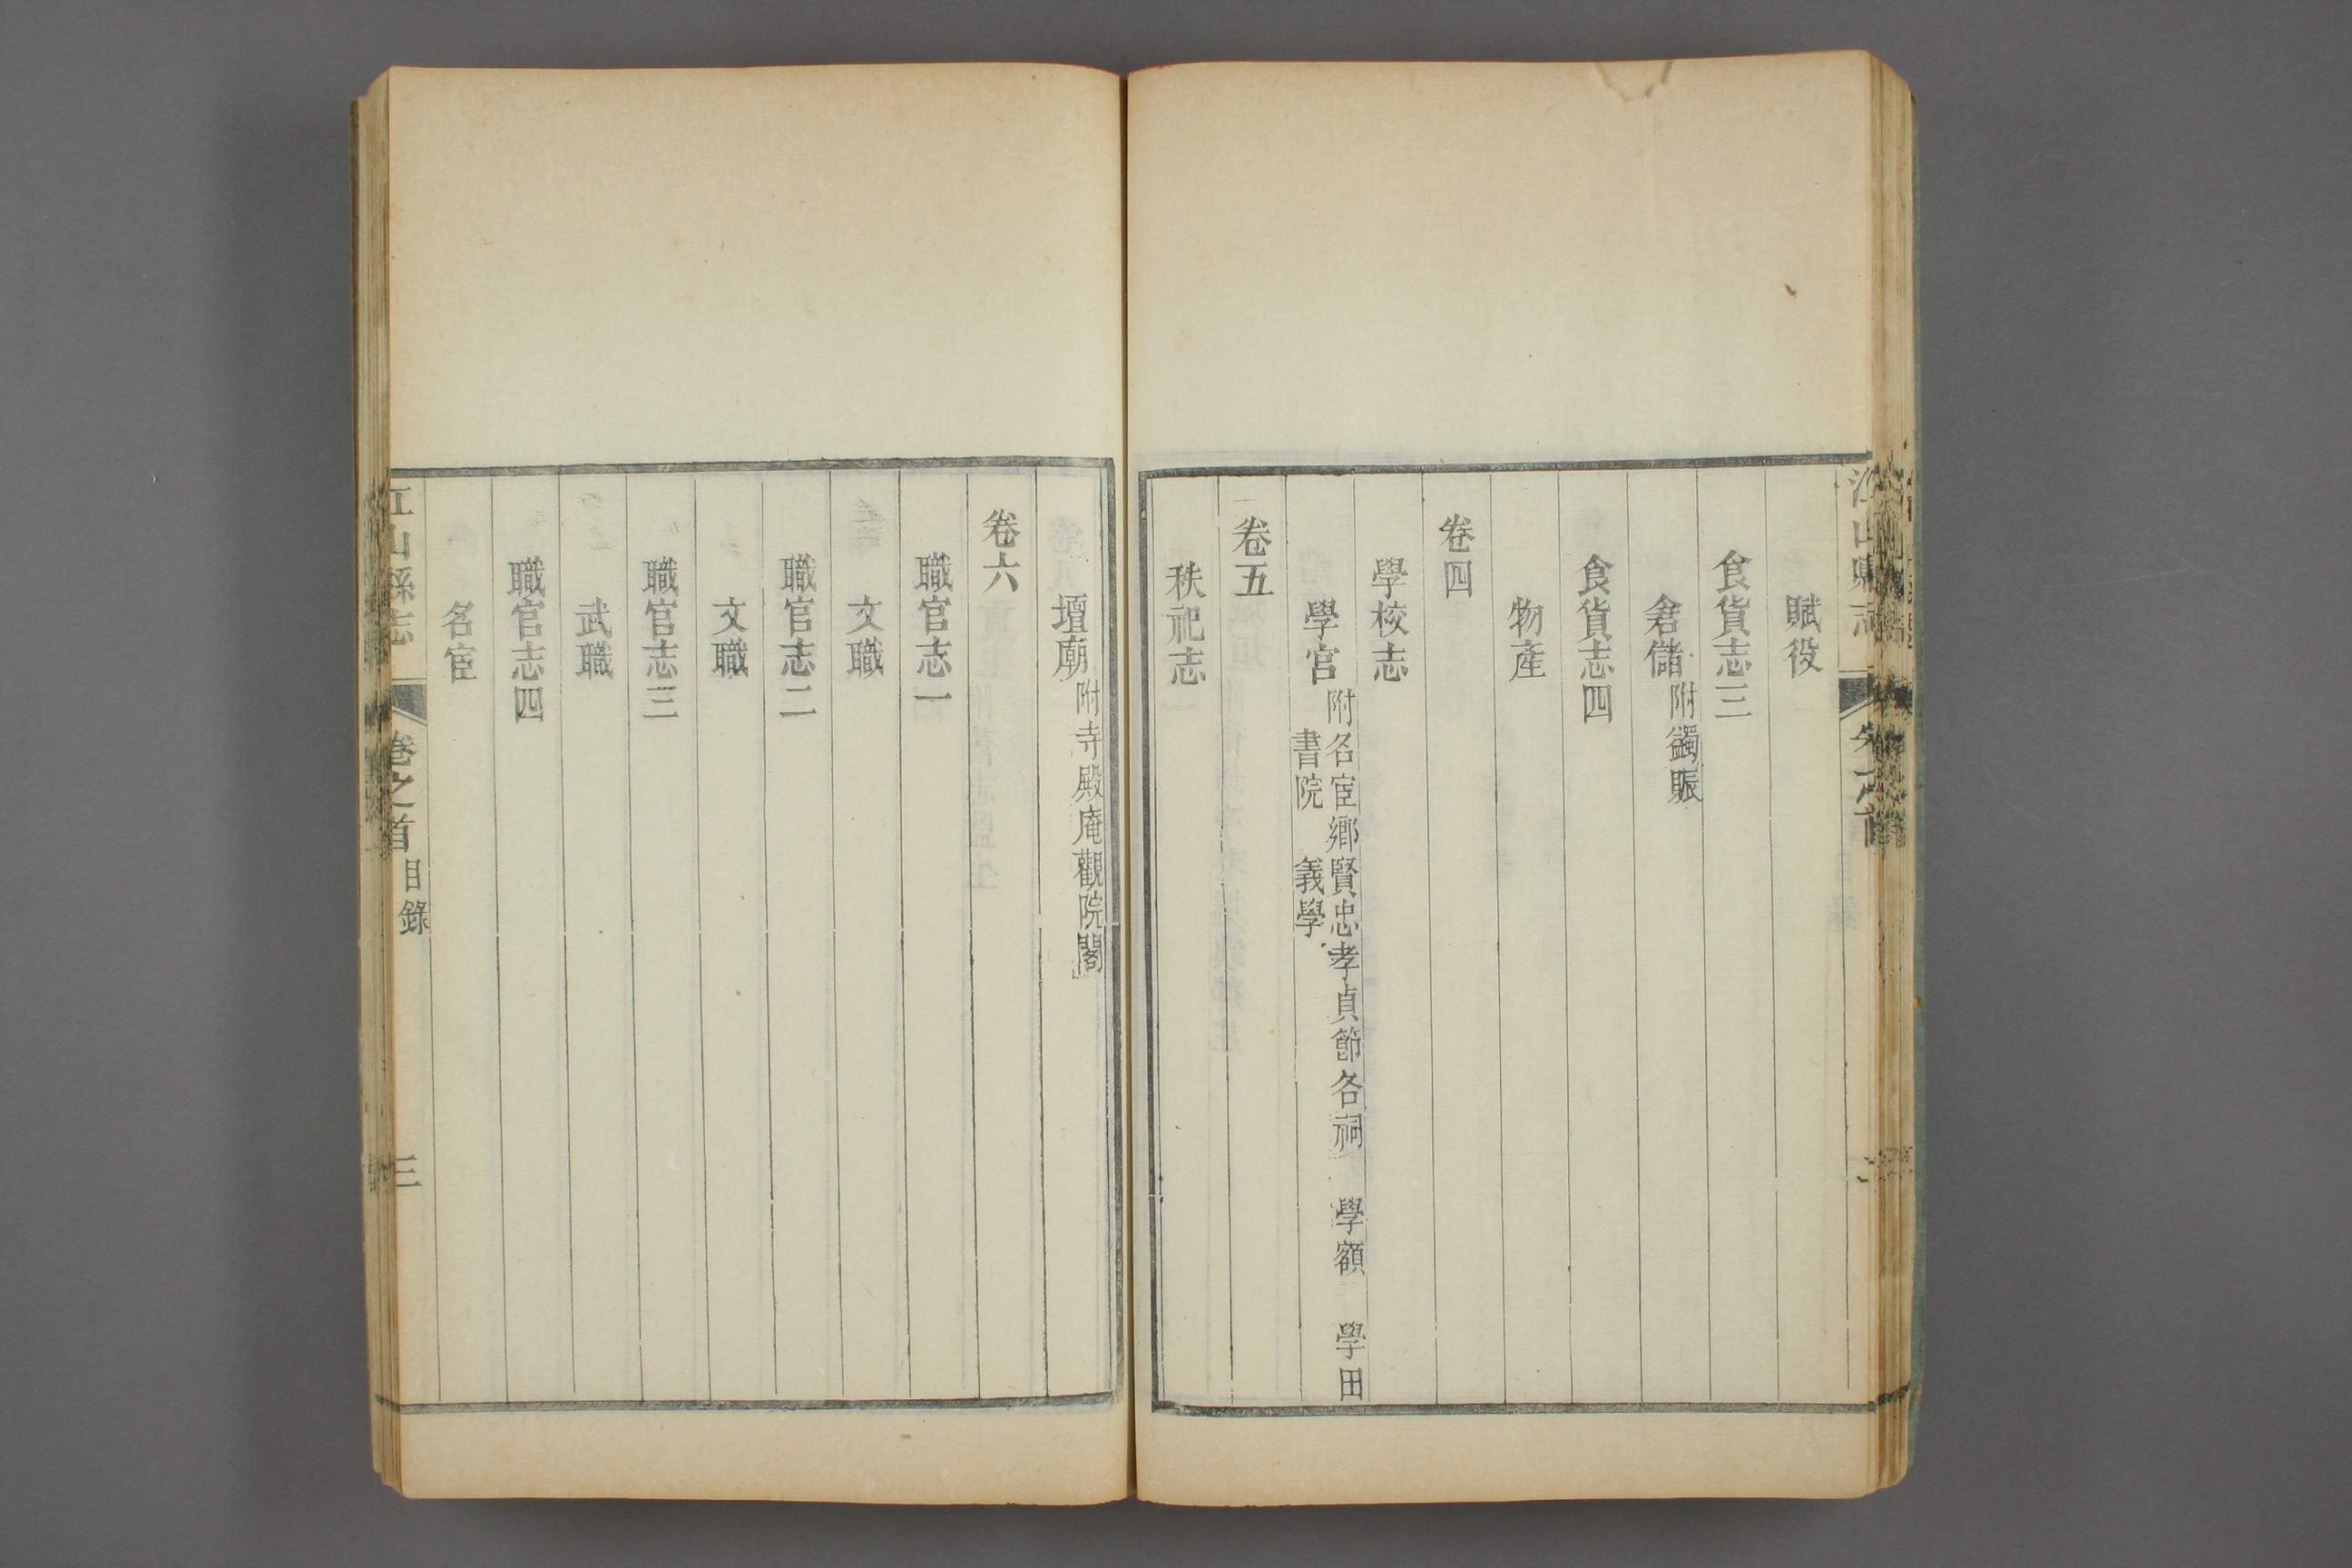 賦役
食貨志三
倉儲附蠲賑
食貨志四
物產
卷四
學校志
學宮附名宦鄉賢忠孝貞節各祠 學額 學田
書院 義學
卷五
秩祀志
壇廟附寺殿庵觀院閣
卷六
職官志一
文職
職官志二
文職
職官志三
武職
職官志四
名宦
江山縣志 卷之首 目錄 三